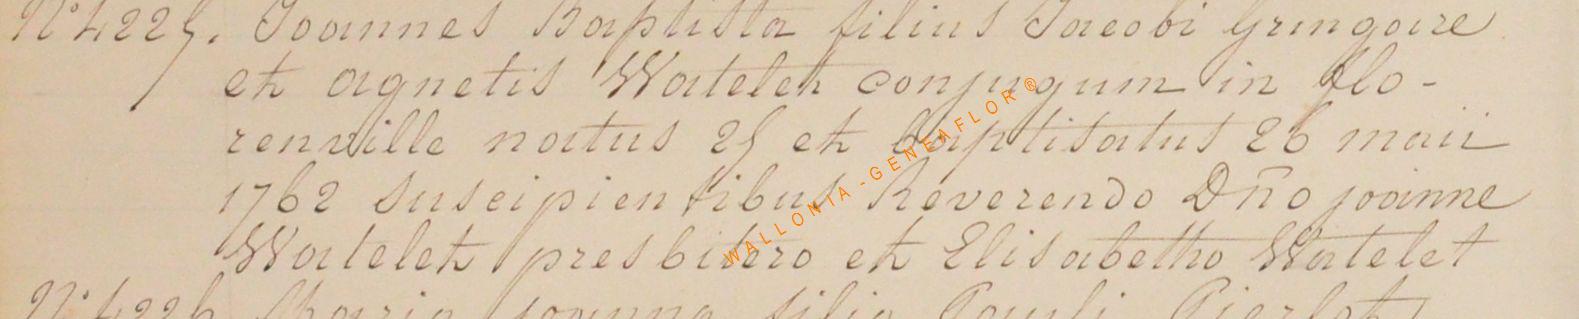 N° 4225. Joannes Baptista filius Jacobi Gringoire
et agnetis Watelet conjugum in Flo-
renville natus 25 et baptisatus 26 maii
1762 suscipientibus Reverendo Dño joanne
Watelet presbitero et Elisabetha Watelet
N° 4226 Maria joanna filia Pauli Pierlot
WALLONIA-GENEAFLOR®